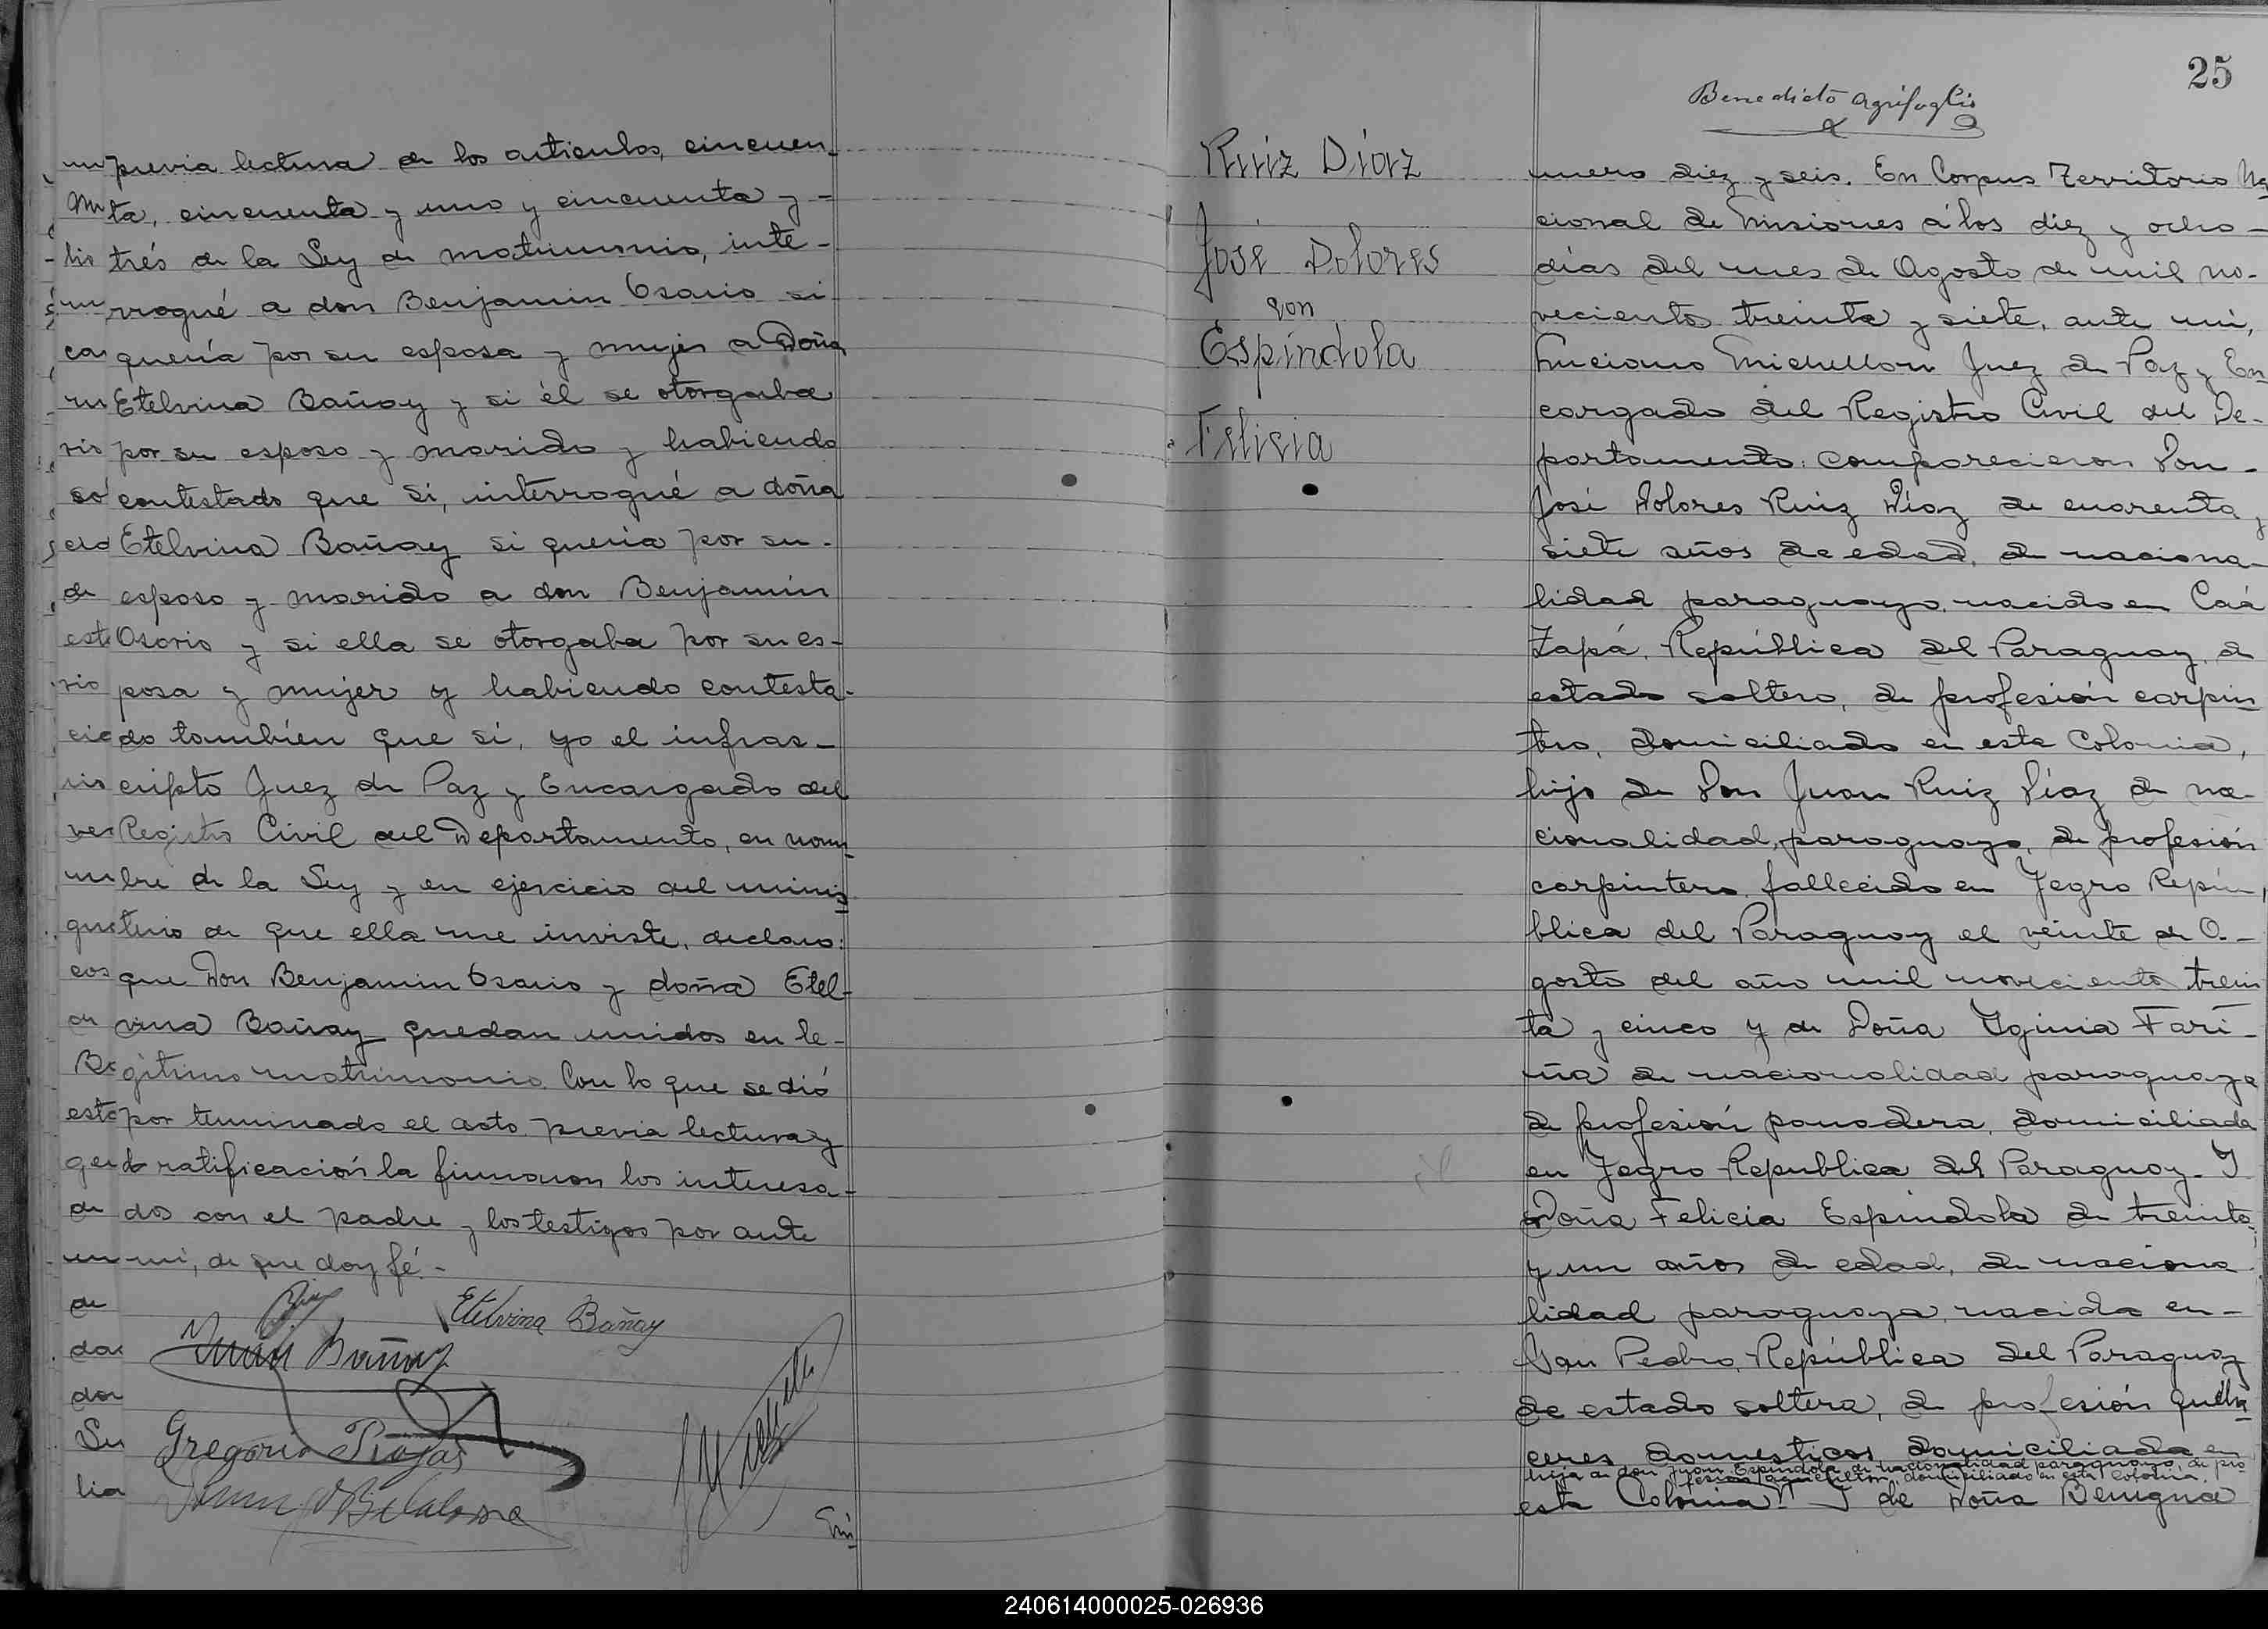 previa lectura de los articulos, cincuen-
ta, cincuenta y uno y cincuenta y -
trés de la Ley de matrimonio, inte-
rrogué a don Benjamin Osorio si
quería por su esposa y mujer a Doña
Etelvina Bañay y si él se otorgaba
por su esposo y marido y habiendo
contestado que si, interrogué a doña
Etelvina Bañay si queria por su -
esposo y marido a don Benjamín
Osorio y si ella se otorgaba por su es-
posa y mujer y habiendo contesta-
do también que si, yo el infras-
cripto Juez de Paz y Encargado del
Registro Civil del Departamento, en nom-
bre de la Ley y en ejercicio del minis-
terio de que ella me inviste, declaro:
que Don Benjamin Osorio y doña Etel-
vina Bañay quedan unidos en le-
gitimo matrimonio. Con lo que se dió
por terminado el acto previa lectura y
ratificación la firmaron los interesa-
dos con el padre y los testigos por ante
mi, de que doy fé. -
Etelvina Bañay
Juan Bañay
Gregorio Rojas
25
Benedicto Agrifoglio
Ruiz Díaz
José Dolores
con
Espíndola
Felicia
mero diez y seis. En Corpus Territorio Na-
cional de Misiones á los diez y ocho -
días del mes de Agosto de mil no-
veciento treinta y siete, ante mi,
Luciano Michellon Juez de Paz y En
cargado del Registro Civil del De-
partamento: comparecieron Don -
José Dolores Ruiz Díaz de cuarenta y
siete años de edad, de naciona-
lidad paraguayo, nacido en Caá
Zapá, República del Paraguay, de
estado soltero, de profesión carpin
tero, domiciliado en esta Colonia,
hijo de Don Juan Ruiz Díaz de na-
cionalidad, paraguayo, de profesión
carpintero, fallecido en Yegro Repú-
blica del Paraguay el veinte de A-
gosto del año mil noveciento trein
ta y cinco y de Doña Yginia Fari-
ña de nacionalidad paraguaya
de profesión panadera, domiciliada
en Yegro Republica del Paraguay. Y
Doña Felicia Espindola de treinta
y un años de edad, de naciona
lidad paraguaya, nacida en -
San Pedro, República del Paraguay
de estado soltera, de profesión queha
ceres domesticos domiciliada en
hija de don Juan Espíndola, de nacionalidad paraguayo, de pro
fesion agricultor, domiciliado en esta Colonia,
esta Colonia. Y de Doña Benigna
240614000025-026936